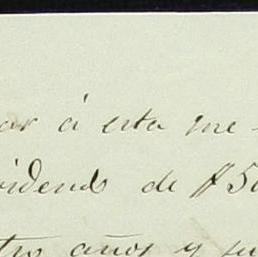 ar á esta me-
videndo de $50
tro años y su